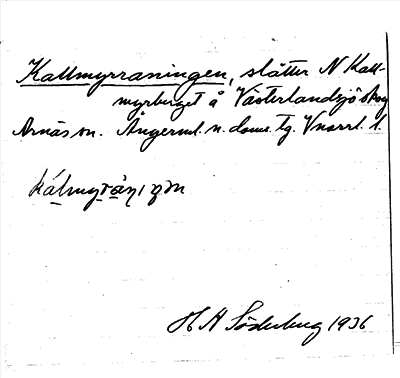 Kallmyrraningen, slåtter N Kall-
myrberget å Västerlandsjö skog
Arnäs sn. Ångerml. n. doms. tg. Vnorrl. l.
kálmyṛàṇıɳən
H A Söderberg 1936